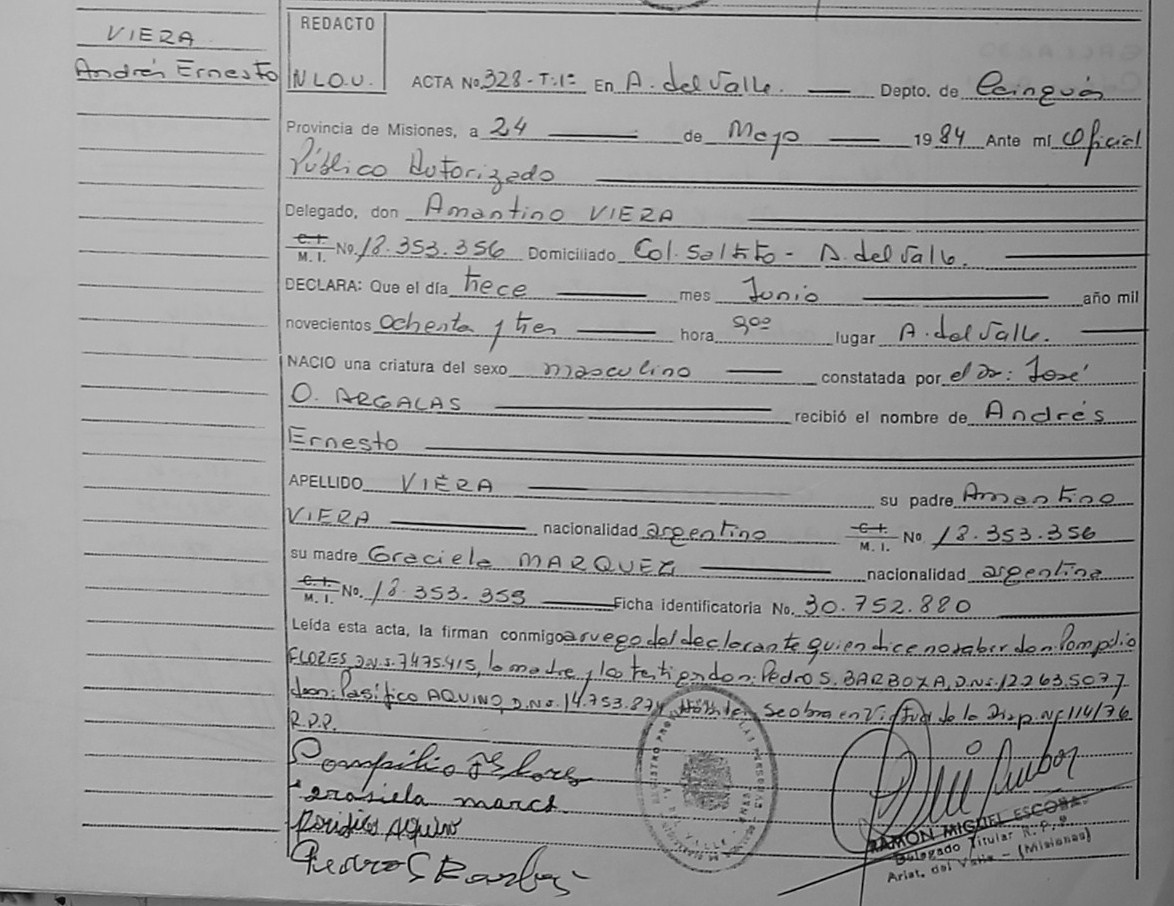 VIERA
Andrés Ernesto
REDACTO
N.L.O.U.
ACTA No. 328-T:1º En A. del Valle. Depto. de Cainguás
Provincia de Misiones, a 24 de Mayo 1984 Ante mí Oficial
Público Autorizado
Delegado, don Amantino VIERA
C.I. M.I. No. 18.353.356 Domiciliado Col. Saltito - A. del Valle.
DECLARA: Que el día trece mes Junio año mil
novecientos ochenta y tres hora 9,00 lugar A. del Valle.
NACIO una criatura del sexo masculino constatada por el Dr: José
O. ARGALAS recibió el nombre de Andrés
Ernesto
APELLIDO VIERA su padre Amantino
VIERA nacionalidad argentino C.I. M.I. No 18.353.356
su madre Graciela MARQUEZ nacionalidad argentina
C.I. M.I. No. 18.353.359 Ficha identificatoria No. 30.752.880
Leída esta acta, la firman conmigo a ruego del declarante quien dice no saber don: Pompilio
FLORES, D.N.I. 7.475.415, la madre y los testigos don: Pedro S. BARBOZA, D.N.I. 12.263.507 y
don: Pasífico AQUINO, D.N.I. 14.753.874 Se obra en virtud de la Disp. Nº 114/76
R.P.P.
Pompilio Flores
Pedro S Barboz
RAMON MIGUEL ESCOBAR
Delegado Titular R.P.P.
Arist. del Valle - (Misiones)